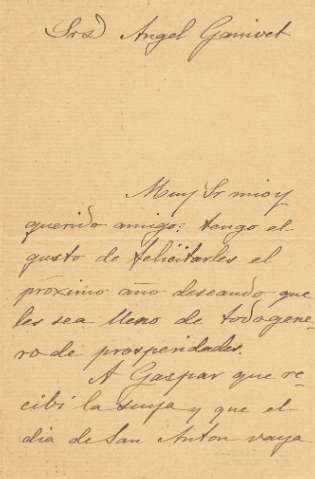 Srs D Angel Ganivet
Muy Sr mio y
querido amigo: tengo el
gusto de felicitarles el
próximo año deseando que
les sea lleno de todo gene-
ro de prosperidades.
A Gaspar que re-
cibí la suya y que el
dia de San Anton vaya